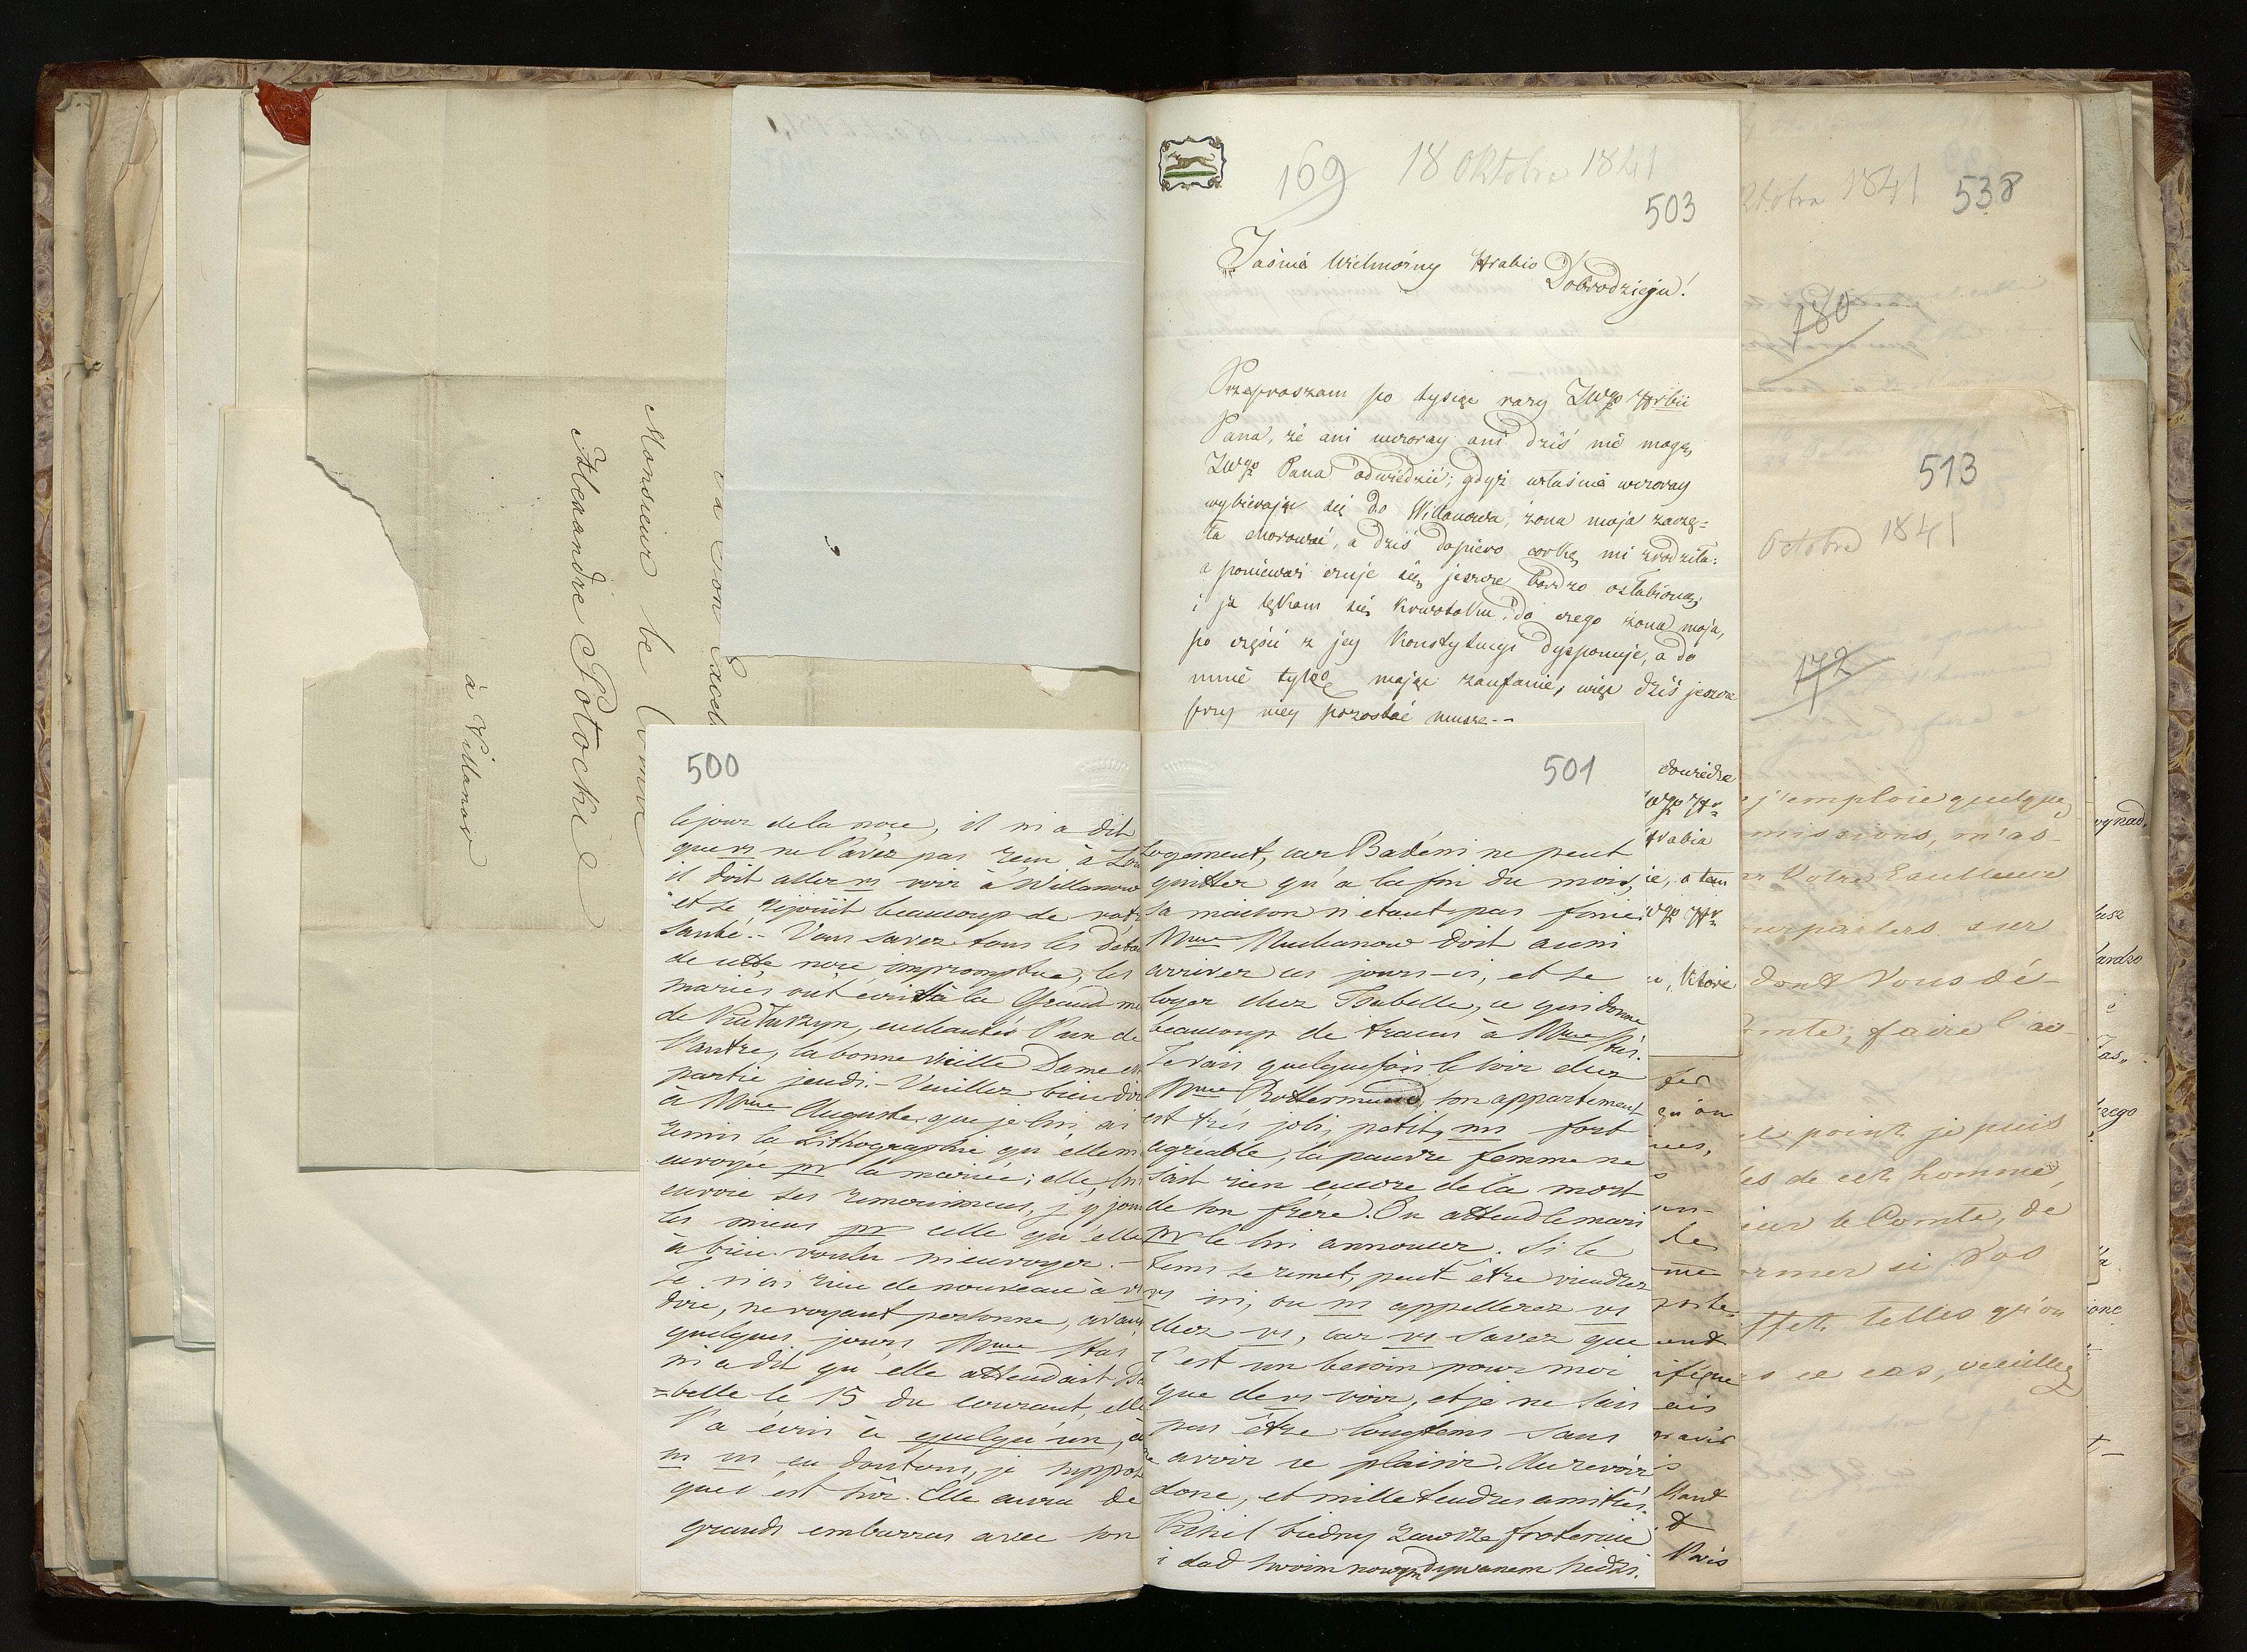 Son Excell
Monsieur le Comte
Alexandre Potocki
à Villanow
500
le jour de la noce, il m'a dit
que vs ne l'avez pas reçu à
il doit aller vs voir à Willanow
et se rejouit beaucoup de votre
santé. – Vous savez tous les détai
de cette noce impromptue, les
mariés ont écrit à la Grand
de enchantés l'un de
l'autre, la bonne vieille Dame est
partie jeudi. – Veuillez bien dire
à Mme Auguste que je lui ai
remis la Lithographie qu'elle m
envoyée pr la mariée; elle lui
envoie ses remercimens, j'y join
les miens pr celle qu'elle
a bien voulu m'envoyer. –
Je n'ai rien de nouveau à vs
dire, ne voyant personne, avant
quelques jours Mme Stas
m'a dit qu'elle attendait Isa
=belle le 15 du courant, elle
l'a écris à quelqu'un, à
en doutons, je suppose
que c'est sûr. Elle aura de
grands embarras avec son
501
logement, car Badéni ne peut
quitter qu'a la fin du mois,
sa maison n'etant pas finie
Mme doit aussi
arriver ces jours-ci, et se
loger chez Isabelle, ce qui donne
beaucoup de tracas à Mme Stas.
Je vais quelquefois le soir chez
Mme Rottermund, son appartement
est très joli, petit, ms fort
agréable, la pauvre femme ne
sait rien encore de la mort
de son frère. On attend le mari
pr le lui annoncer. Si le
tems se remet, peut-être viendrez
vs ici, ou ns appellerez vs
chez vs, car vs savez que
c'est un besoin pour moi
que de vs voir, et je ne sais
pas être longtems sans
avoir ce plaisir. Au revoir
donc, et mille tendres amitiés.
biedny zawsze
i dad swoim nowym dywanem siedzi.
169 18 Oktobra 1841
503
Jaśnie Wielmożny Hrabio
Dobrodzieju!
Przepraszam po tysiąc razy JWgo Hrbii
Pana, że ani wczoray ani dziś nie mogę
JWgo Pana odwiedzić; gdyż właśnie wczoray
wybierając się do Willanowa, żona moja zaczę=
ła chorować, a dziś dopiero corkę mi zrodziła:
a ponieważ czuje się jeszcze bardzo osłabioną,
i ja lękam się krwotoku, do czego żona moja,
po części z jey Konstytucyi dysponuje, a do
mnie tylko mając zaufanie, więc dziś jeszcze
przy niey pozostać muszę. –
Hrabia
a tem
Ktore
ktobra 1841
538
180
513
Octobre 1841
172
j'emploie quelques
missions, m'as-
Votre Excellence
sur
dont Vous dé-
faire l'ac-
point, je puis
de cet homme,
le Comte, de
ormer si Vos
telles qu'on
ce cas, veuillez